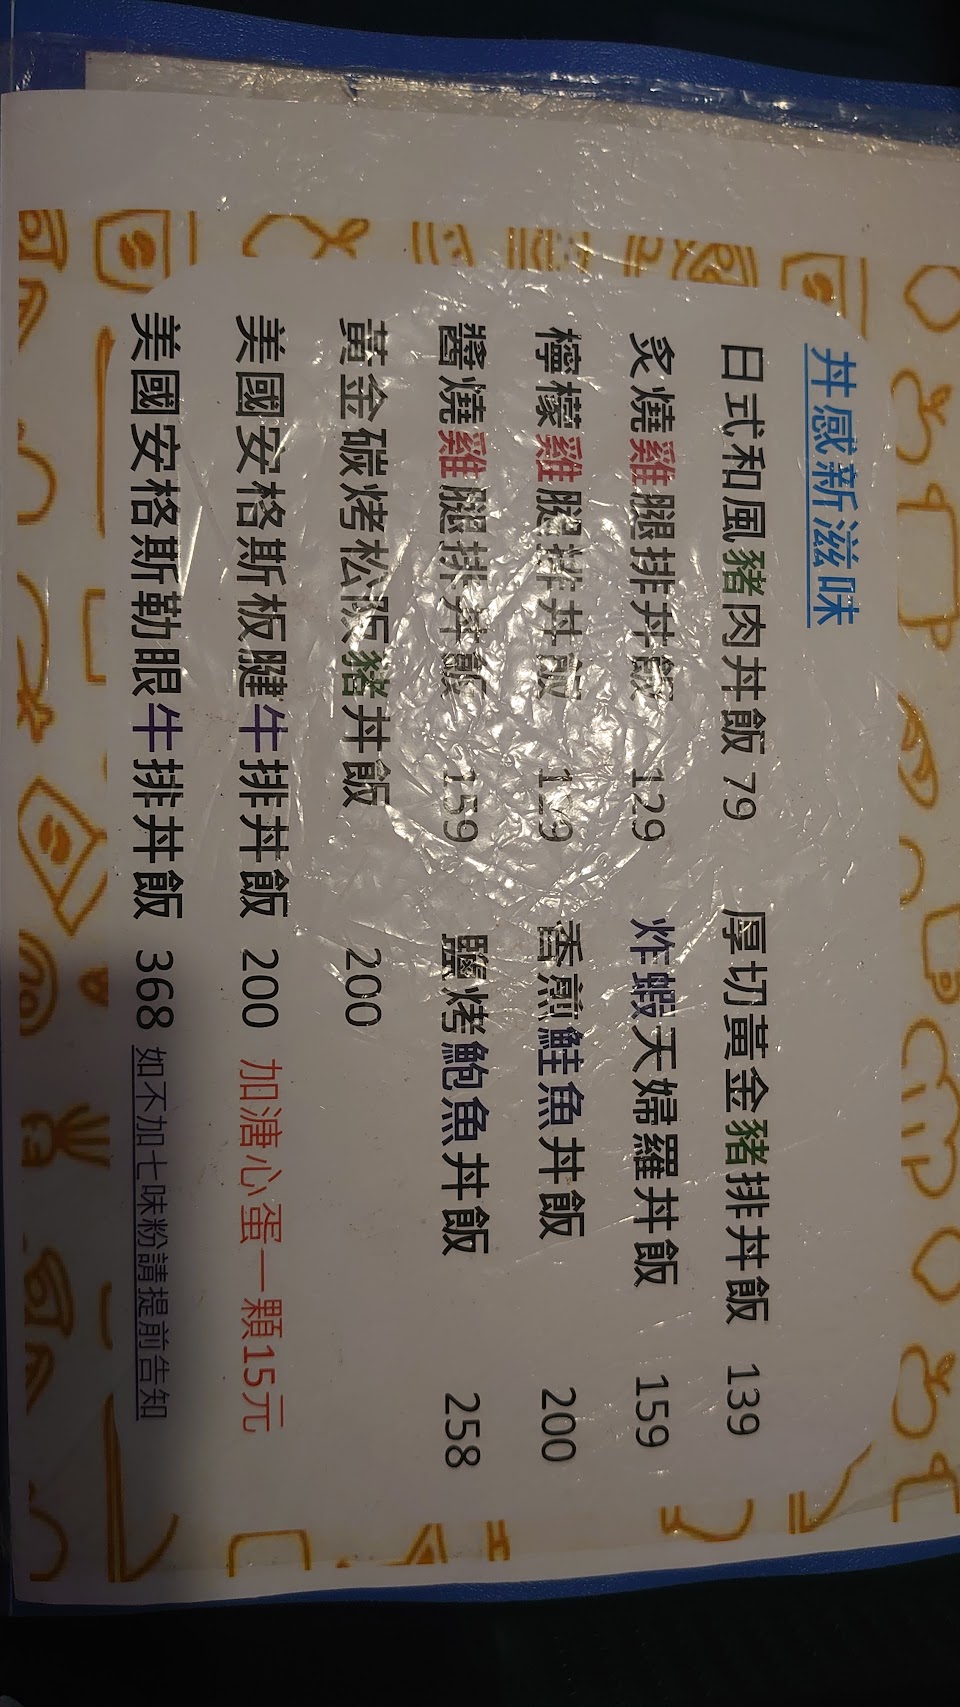 丼感新滋味
日式和風豬肉丼飯 79 厚切黃金豬排丼飯 139
炙燒雞腿排丼飯 129 炸蝦天婦羅丼飯 159
檸檬雞腿排丼飯 香煎鮭魚丼飯 200
醬燒雞腿排丼飯 159 鹽烤鮑魚丼飯 258
黃金碳烤松阪豬丼飯 200
美國安格斯板腱牛排丼飯 200 加溏心蛋一顆15元
美國安格斯勒眼牛排丼飯 368 如不加七味粉請提前告知